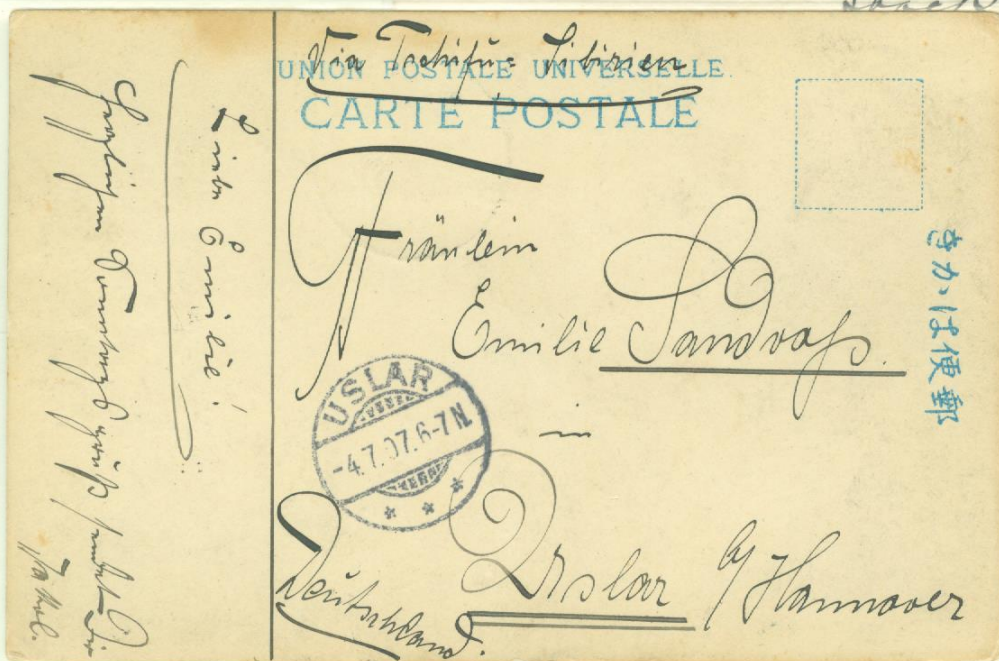 Via Tschifu = Sibirien
UNION POSTALE UNIVERSELLE.
CARTE POSTALE
Fräulein
Emilie Sandvoß.
in
Uslar b/Hannover
Deutschland.
USLAR
-4.7.07.6-7N.
郵便はかき
Liebe Emilie!
Herzlichen
sendet Dir